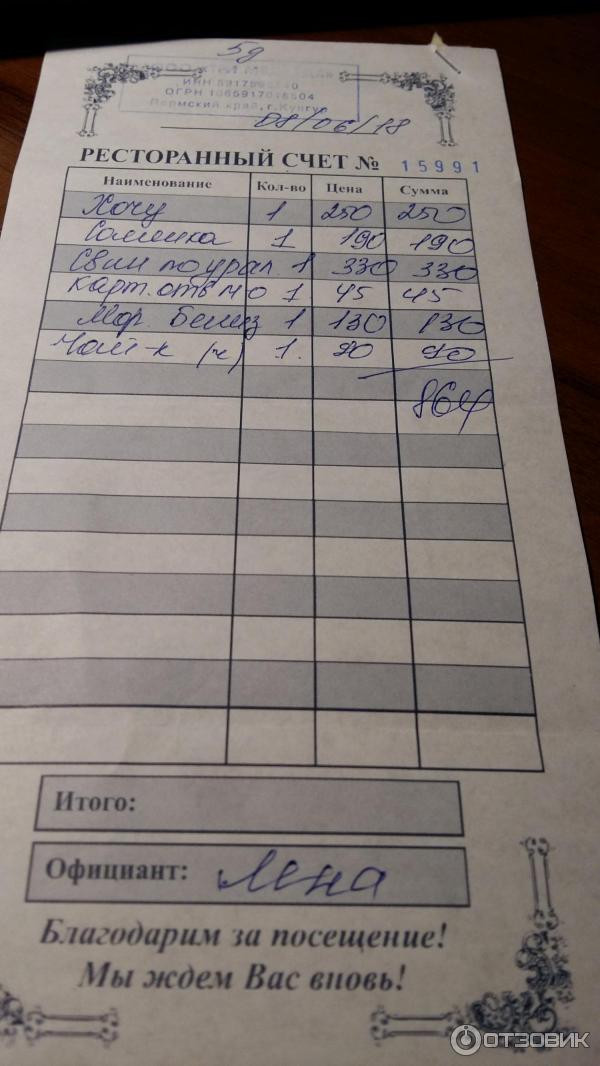 5д
Пермский край, г.Кунгур
08/06/18
РЕСТОРАННЫЙ СЧЕТ № 15991
Наименование Кол-во Цена Сумма
Хочу 1 250 250
Соленка 1 190 190
Свин по урал 1 330 330
карт. отв мо 1. 45 45
Мор. 1 130 130
Чай-к (ч) 1. 20 20
Итого:
Официант: Лена
Благодарим за посещение!
Мы ждем Вас вновь!
ОТЗОВИК